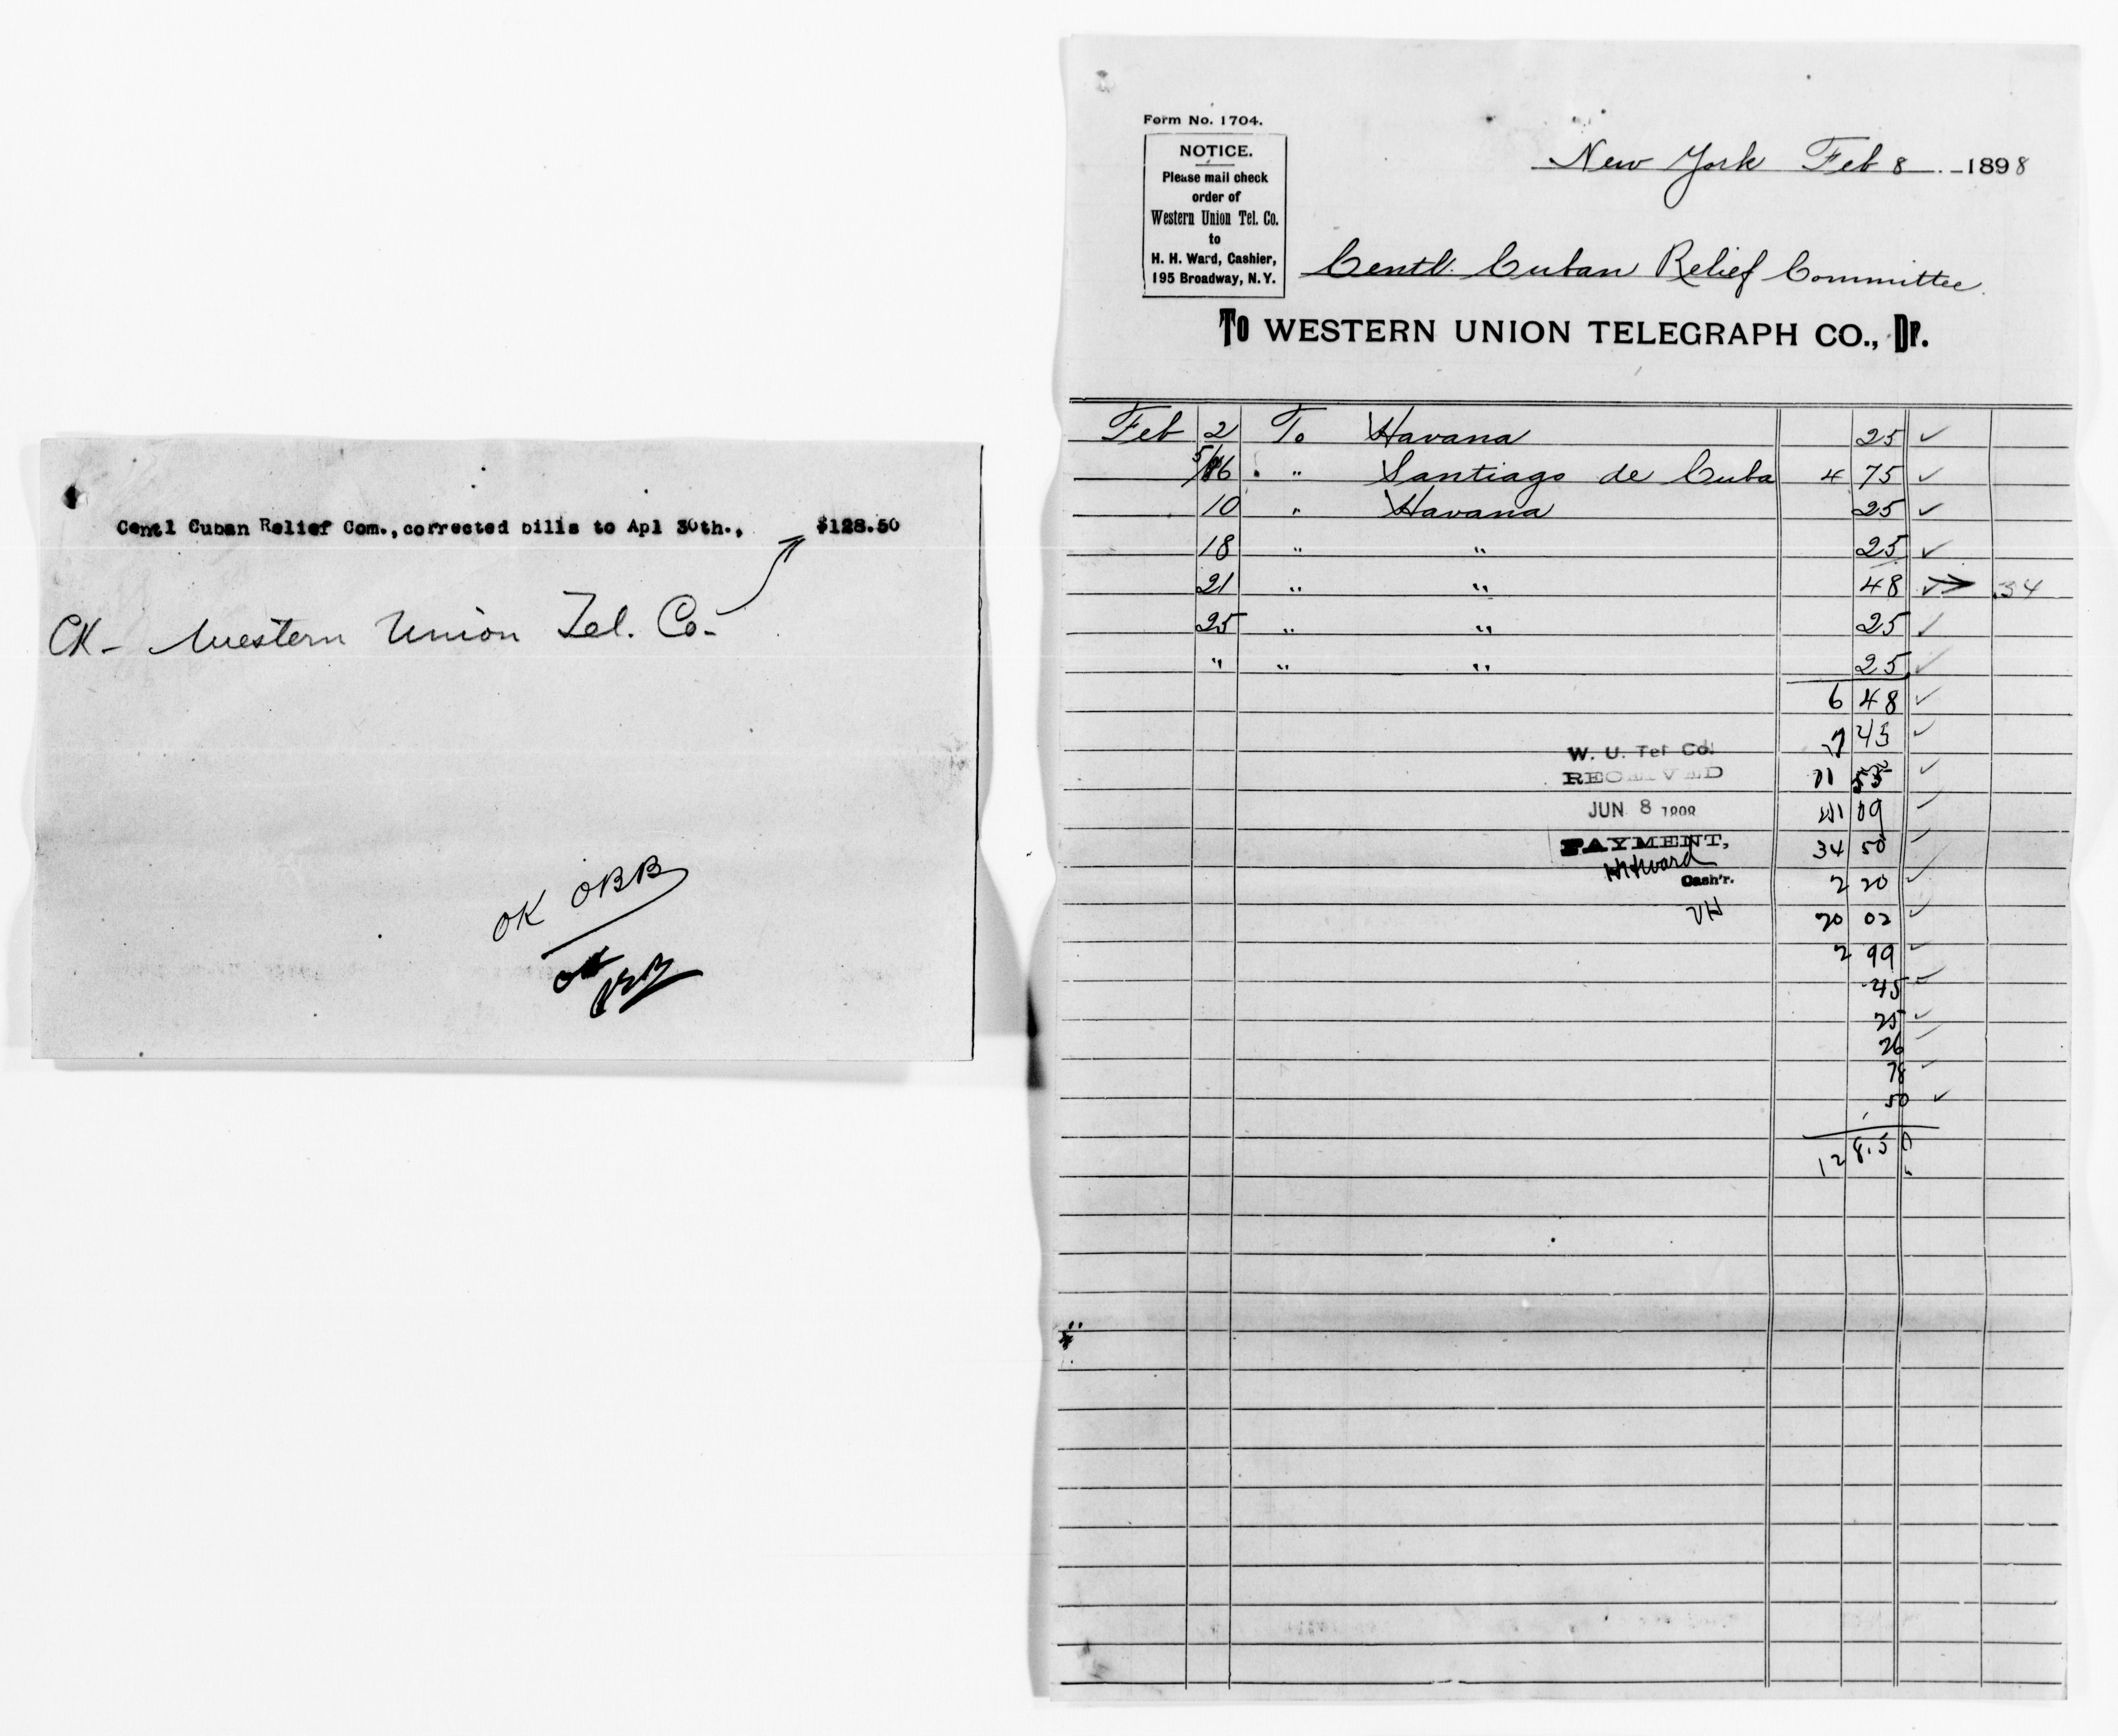 Centl Cuban Relief Com., corrected bills to Apl 30th., $128.50
CK- Western Union Tel. Co-
OK OBB
OK
Form No. 1704.
NOTICE.
Please mail check
order of
Western Union Tel. Co.
to
H. H. Ward, Cashier,
195 Broadway, N.Y.
New York Feb 8 1898
Centl. Cuban Relief Committee.
To WESTERN UNION TELEGRAPH CO., Dr.
Feb 2 To Havana 25 ✓
5/16 " Santiago de Cuba 4 75 ✓
10 " Havana 25 ✓
18 " " 25 ✓
21 " " 48 ✓ .34
25 " " 25 ✓
" " " 25 ✓
6 48 ✓
7 43 ✓
11 55 ✓
09 ✓
34 50 ✓
2 20 ✓
20 02 ✓
2 99 ✓
45 ✓
25 ✓
26
78 ✓
50 ✓
128.50
W. U. Tel Co.
RECEIVED
JUN 8
PAYMENT,
HHWard
Cash'r.